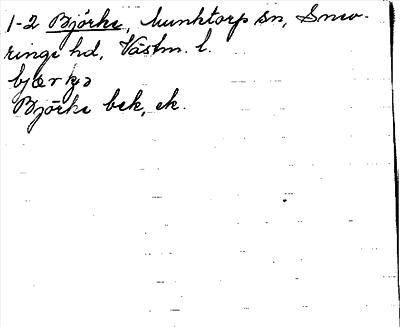 1-2 Björke, Munktorp sn, Snev-
ringe hd, Västm. l.
bjærkə
Björke bek, ek.